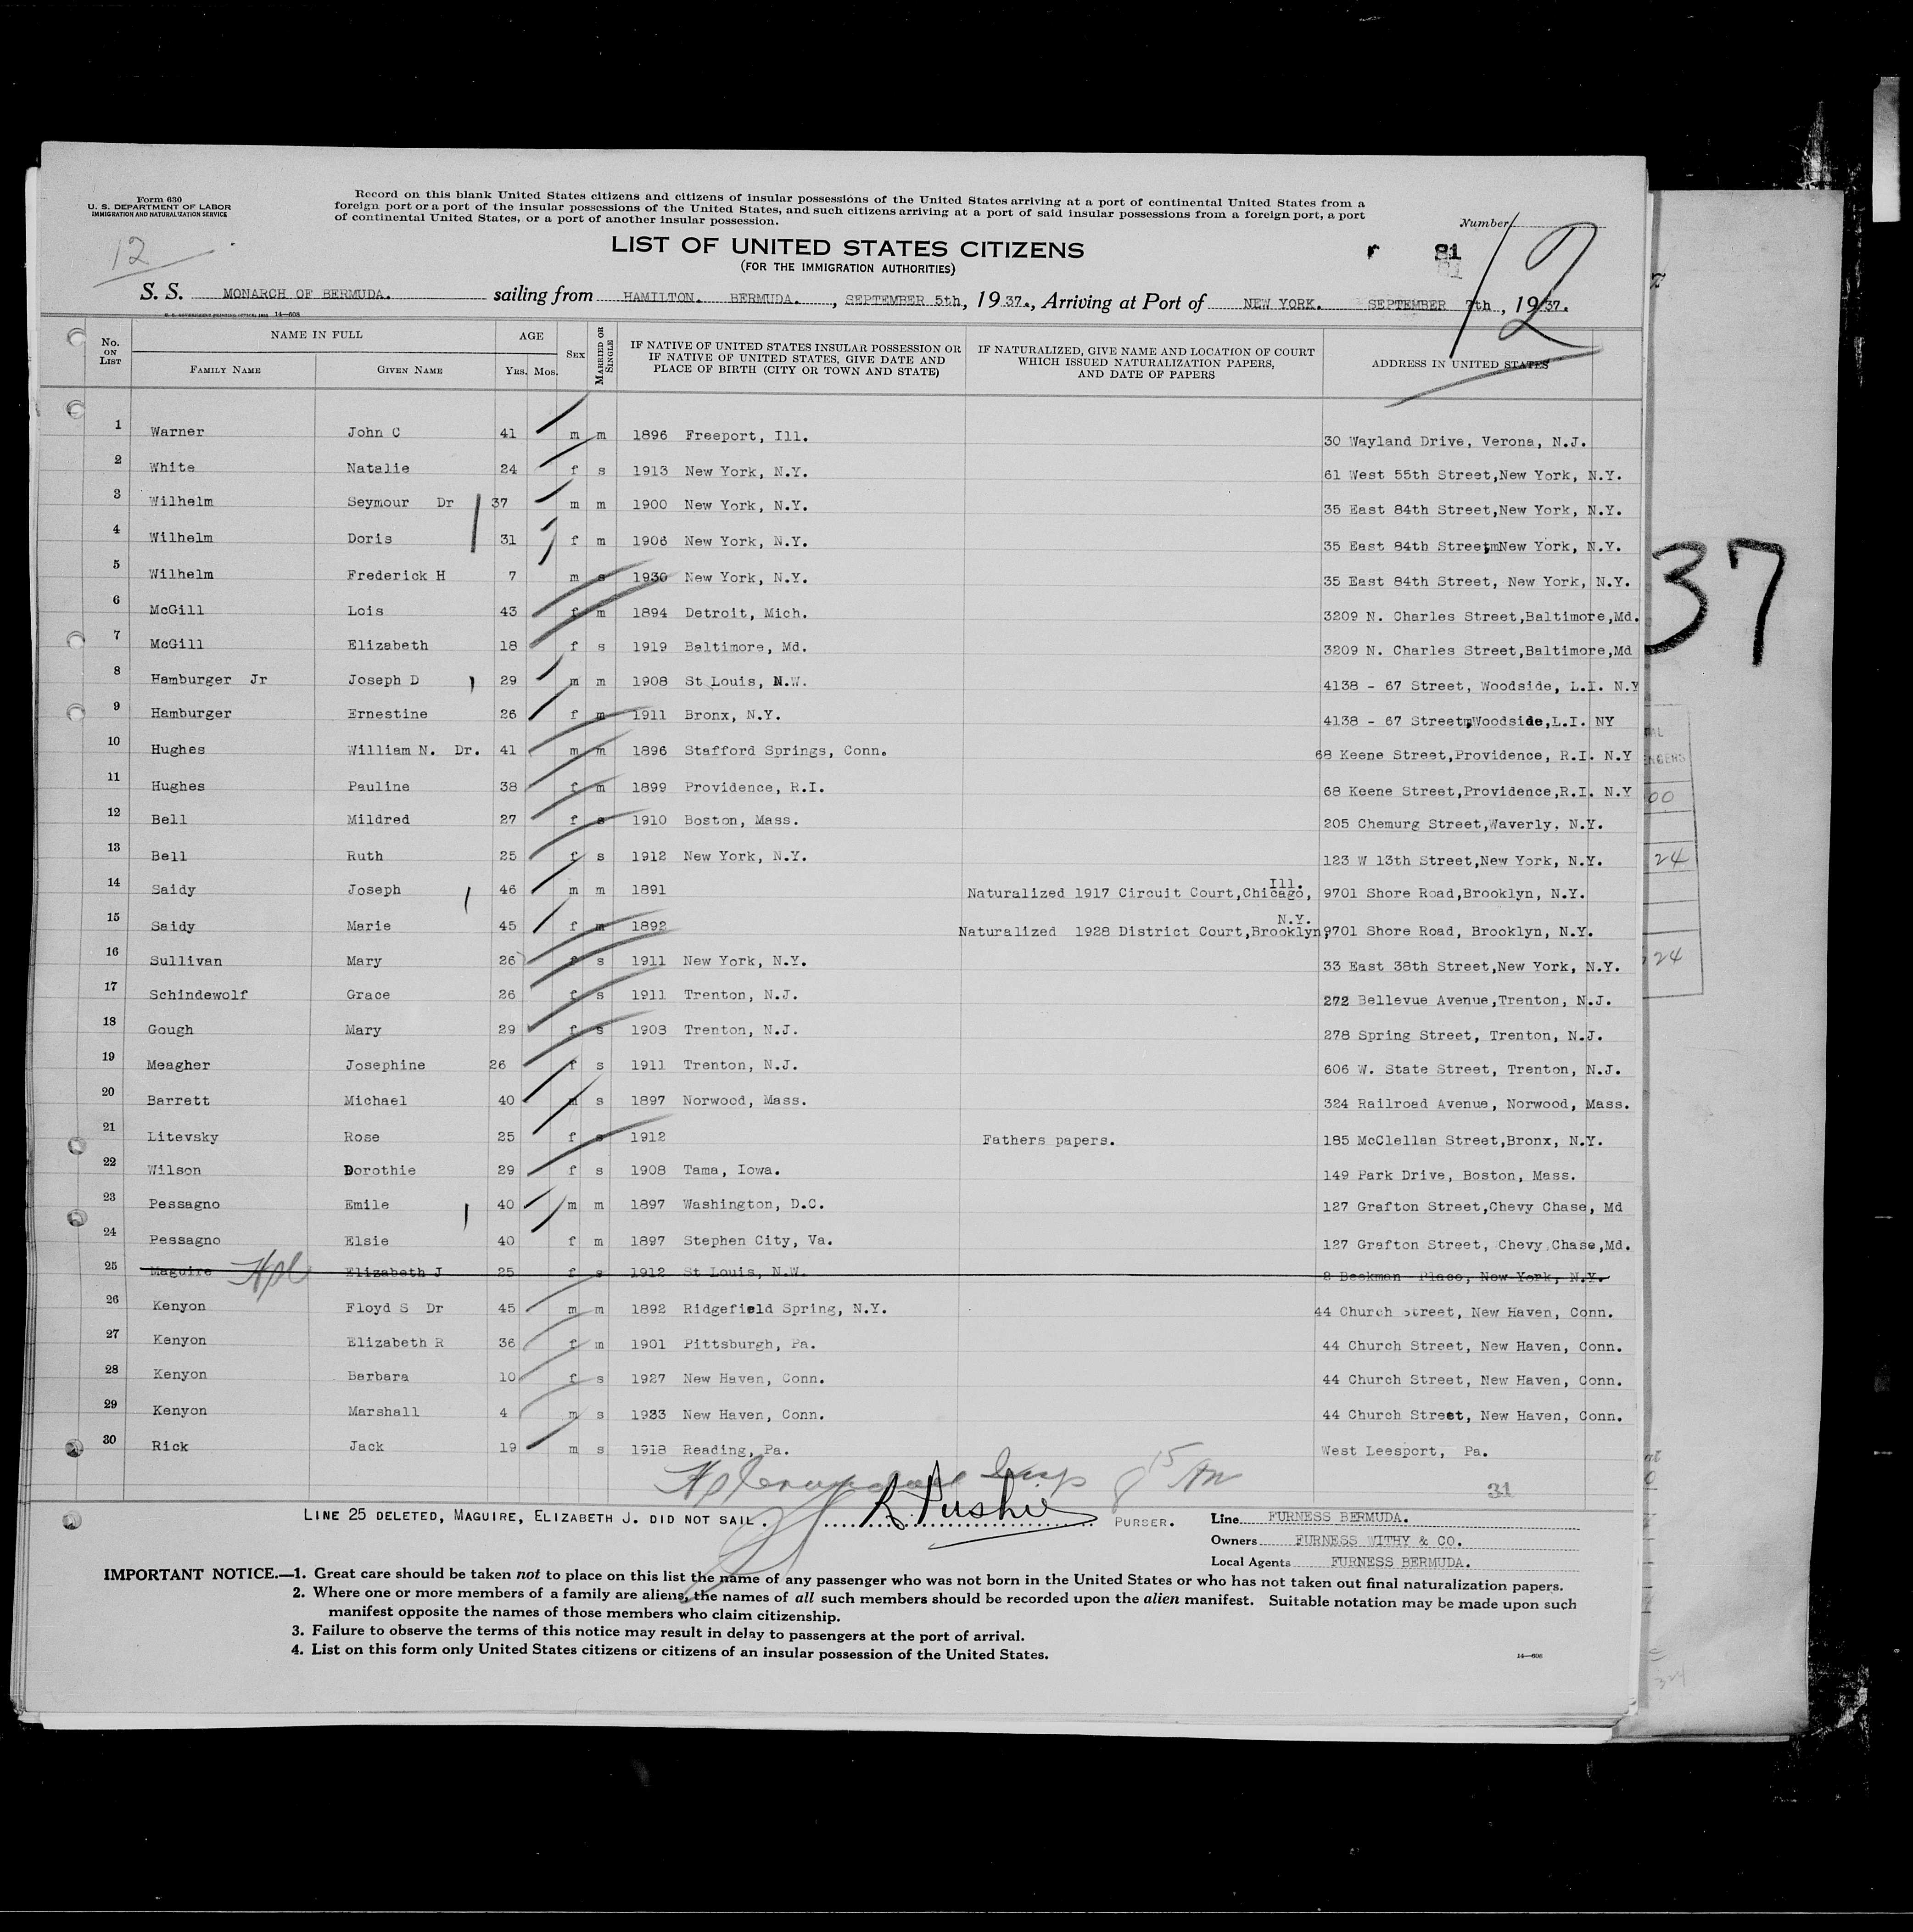 Form 630
U. S. DEPARTMENT OF LABOR
IMMIGRATION AND NATURALIZATION SERVICE
Record on this blank United States citizens and citizens of insular possessions of the United States arriving at a port of continental United States from a
foreign port or a port of the insular possessions of the United States, and such citizens arriving at a port of said insular possessions from a foreign port, a port
of continental United States, or a port of another insular possession.
Number
12
LIST OF UNITED STATES CITIZENS
(FOR THE IMMIGRATION AUTHORITIES)
81
12
S. S. MONARCH OF BERMUDA. sailing from HAMILTON. BERMUDA. , SEPTEMBER 5th, 1937., Arriving at Port of NEW YORK. SEPTEMBER 7th, 1937.
U. S. GOVERNMENT PRINTING OFFICE 14—608
No. ON LIST NAME IN FULL AGE SEX MARRIED OR SINGLE IF NATIVE OF UNITED STATES INSULAR POSSESSION OR IF NATIVE OF UNITED STATES, GIVE DATE AND PLACE OF BIRTH (CITY OR TOWN AND STATE) IF NATURALIZED, GIVE NAME AND LOCATION OF COURT WHICH ISSUED NATURALIZATION PAPERS, AND DATE OF PAPERS ADDRESS IN UNITED STATES
FAMILY NAME GIVEN NAME YRS. MOS.
1 Warner John C 41 m m 1896 Freeport, Ill. 30 Wayland Drive, Verona, N.J.
2 White Natalie 24 f s 1913 New York, N.Y. 61 West 55th Street,New York, N.Y.
3 Wilhelm Seymour Dr 37 m m 1900 New York, N.Y. 35 East 84th Street,New York, N.Y.
4 Wilhelm Doris 31 f m 1906 New York, N.Y. 35 East 84th Street,mNew York, N.Y.
5 Wilhelm Frederick H 7 m s 1930 New York, N.Y. 35 East 84th Street, New York, N.Y.
6 McGill Lois 43 f m 1894 Detroit, Mich. 3209 N. Charles Street,Baltimore,Md.
7 McGill Elizabeth 18 f s 1919 Baltimore, Md. 3209 N. Charles Street,Baltimore,Md
8 Hamburger Jr Joseph D 29 m m 1908 St Louis, N.W. 4138 - 67 Street, Woodside, L.I. N.Y
9 Hamburger Ernestine 26 f m 1911 Bronx, N.Y. 4138 - 67 Street,Woodside,L.I. NY
10 Hughes William N. Dr. 41 m m 1896 Stafford Springs, Conn. 68 Keene Street,Providence, R.I. N.Y
11 Hughes Pauline 38 f m 1899 Providence, R.I. 68 Keene Street,Providence,R.I. N.Y
12 Bell Mildred 27 f s 1910 Boston, Mass. 205 Chemurg Street,Waverly, N.Y.
13 Bell Ruth 25 f s 1912 New York, N.Y. 123 W 13th Street,New York, N.Y.
14 Saidy Joseph 46 m m 1891 Naturalized 1917 Circuit Court,Chicago, Ill. 9701 Shore Road,Brooklyn, N.Y.
15 Saidy Marie 45 f m 1892 Naturalized 1928 District Court,Brooklyn, N.Y. 9701 Shore Road, Brooklyn, N.Y.
16 Sullivan Mary 26 f s 1911 New York, N.Y. 33 East 38th Street,New York, N.Y.
17 Schindewolf Grace 26 f s 1911 Trenton, N.J. 272 Bellevue Avenue,Trenton, N.J.
18 Gough Mary 29 f s 1908 Trenton, N.J. 278 Spring Street, Trenton, N.J.
19 Meagher Josephine 26 f s 1911 Trenton, N.J. 606 W. State Street, Trenton, N.J.
20 Barrett Michael 40 m s 1897 Norwood, Mass. 324 Railroad Avenue, Norwood, Mass.
21 Litevsky Rose 25 f s 1912 Fathers papers. 185 McClellan Street,Bronx, N.Y.
22 Wilson Dorothie 29 f s 1908 Tama, Iowa. 149 Park Drive, Boston, Mass.
23 Pessagno Emile 40 m m 1897 Washington, D.C. 127 Grafton Street,Chevy Chase, Md
24 Pessagno Elsie 40 f m 1897 Stephen City, Va. 127 Grafton Street, Chevy Chase,Md.
25 Maguire Elizabeth J 25 f s 1912 St Louis, N.W. 8 Beekman Place, New York, N.Y.
26 Kenyon Floyd S Dr 45 m m 1892 Ridgefield Spring, N.Y. 44 Church Street, New Haven, Conn.
27 Kenyon Elizabeth R 36 f m 1901 Pittsburgh, Pa. 44 Church Street, New Haven, Conn.
28 Kenyon Barbara 10 f s 1927 New Haven, Conn. 44 Church Street, New Haven, Conn.
29 Kenyon Marshall 4 m s 1933 New Haven, Conn. 44 Church Street, New Haven, Conn.
30 Rick Jack 19 m s 1918 Reading, Pa. West Leesport, Pa.
31
LINE 25 DELETED, MAGUIRE, ELIZABETH J. DID NOT SAIL. R Pushie PURSER.
Line FURNESS BERMUDA.
Owners FURNESS WITHY & CO.
Local Agents FURNESS BERMUDA.
IMPORTANT NOTICE.—1. Great care should be taken not to place on this list the name of any passenger who was not born in the United States or who has not taken out final naturalization papers.
2. Where one or more members of a family are aliens, the names of all such members should be recorded upon the alien manifest. Suitable notation may be made upon such
manifest opposite the names of those members who claim citizenship.
3. Failure to observe the terms of this notice may result in delay to passengers at the port of arrival.
4. List on this form only United States citizens or citizens of an insular possession of the United States.
14—608
37
00
24
24